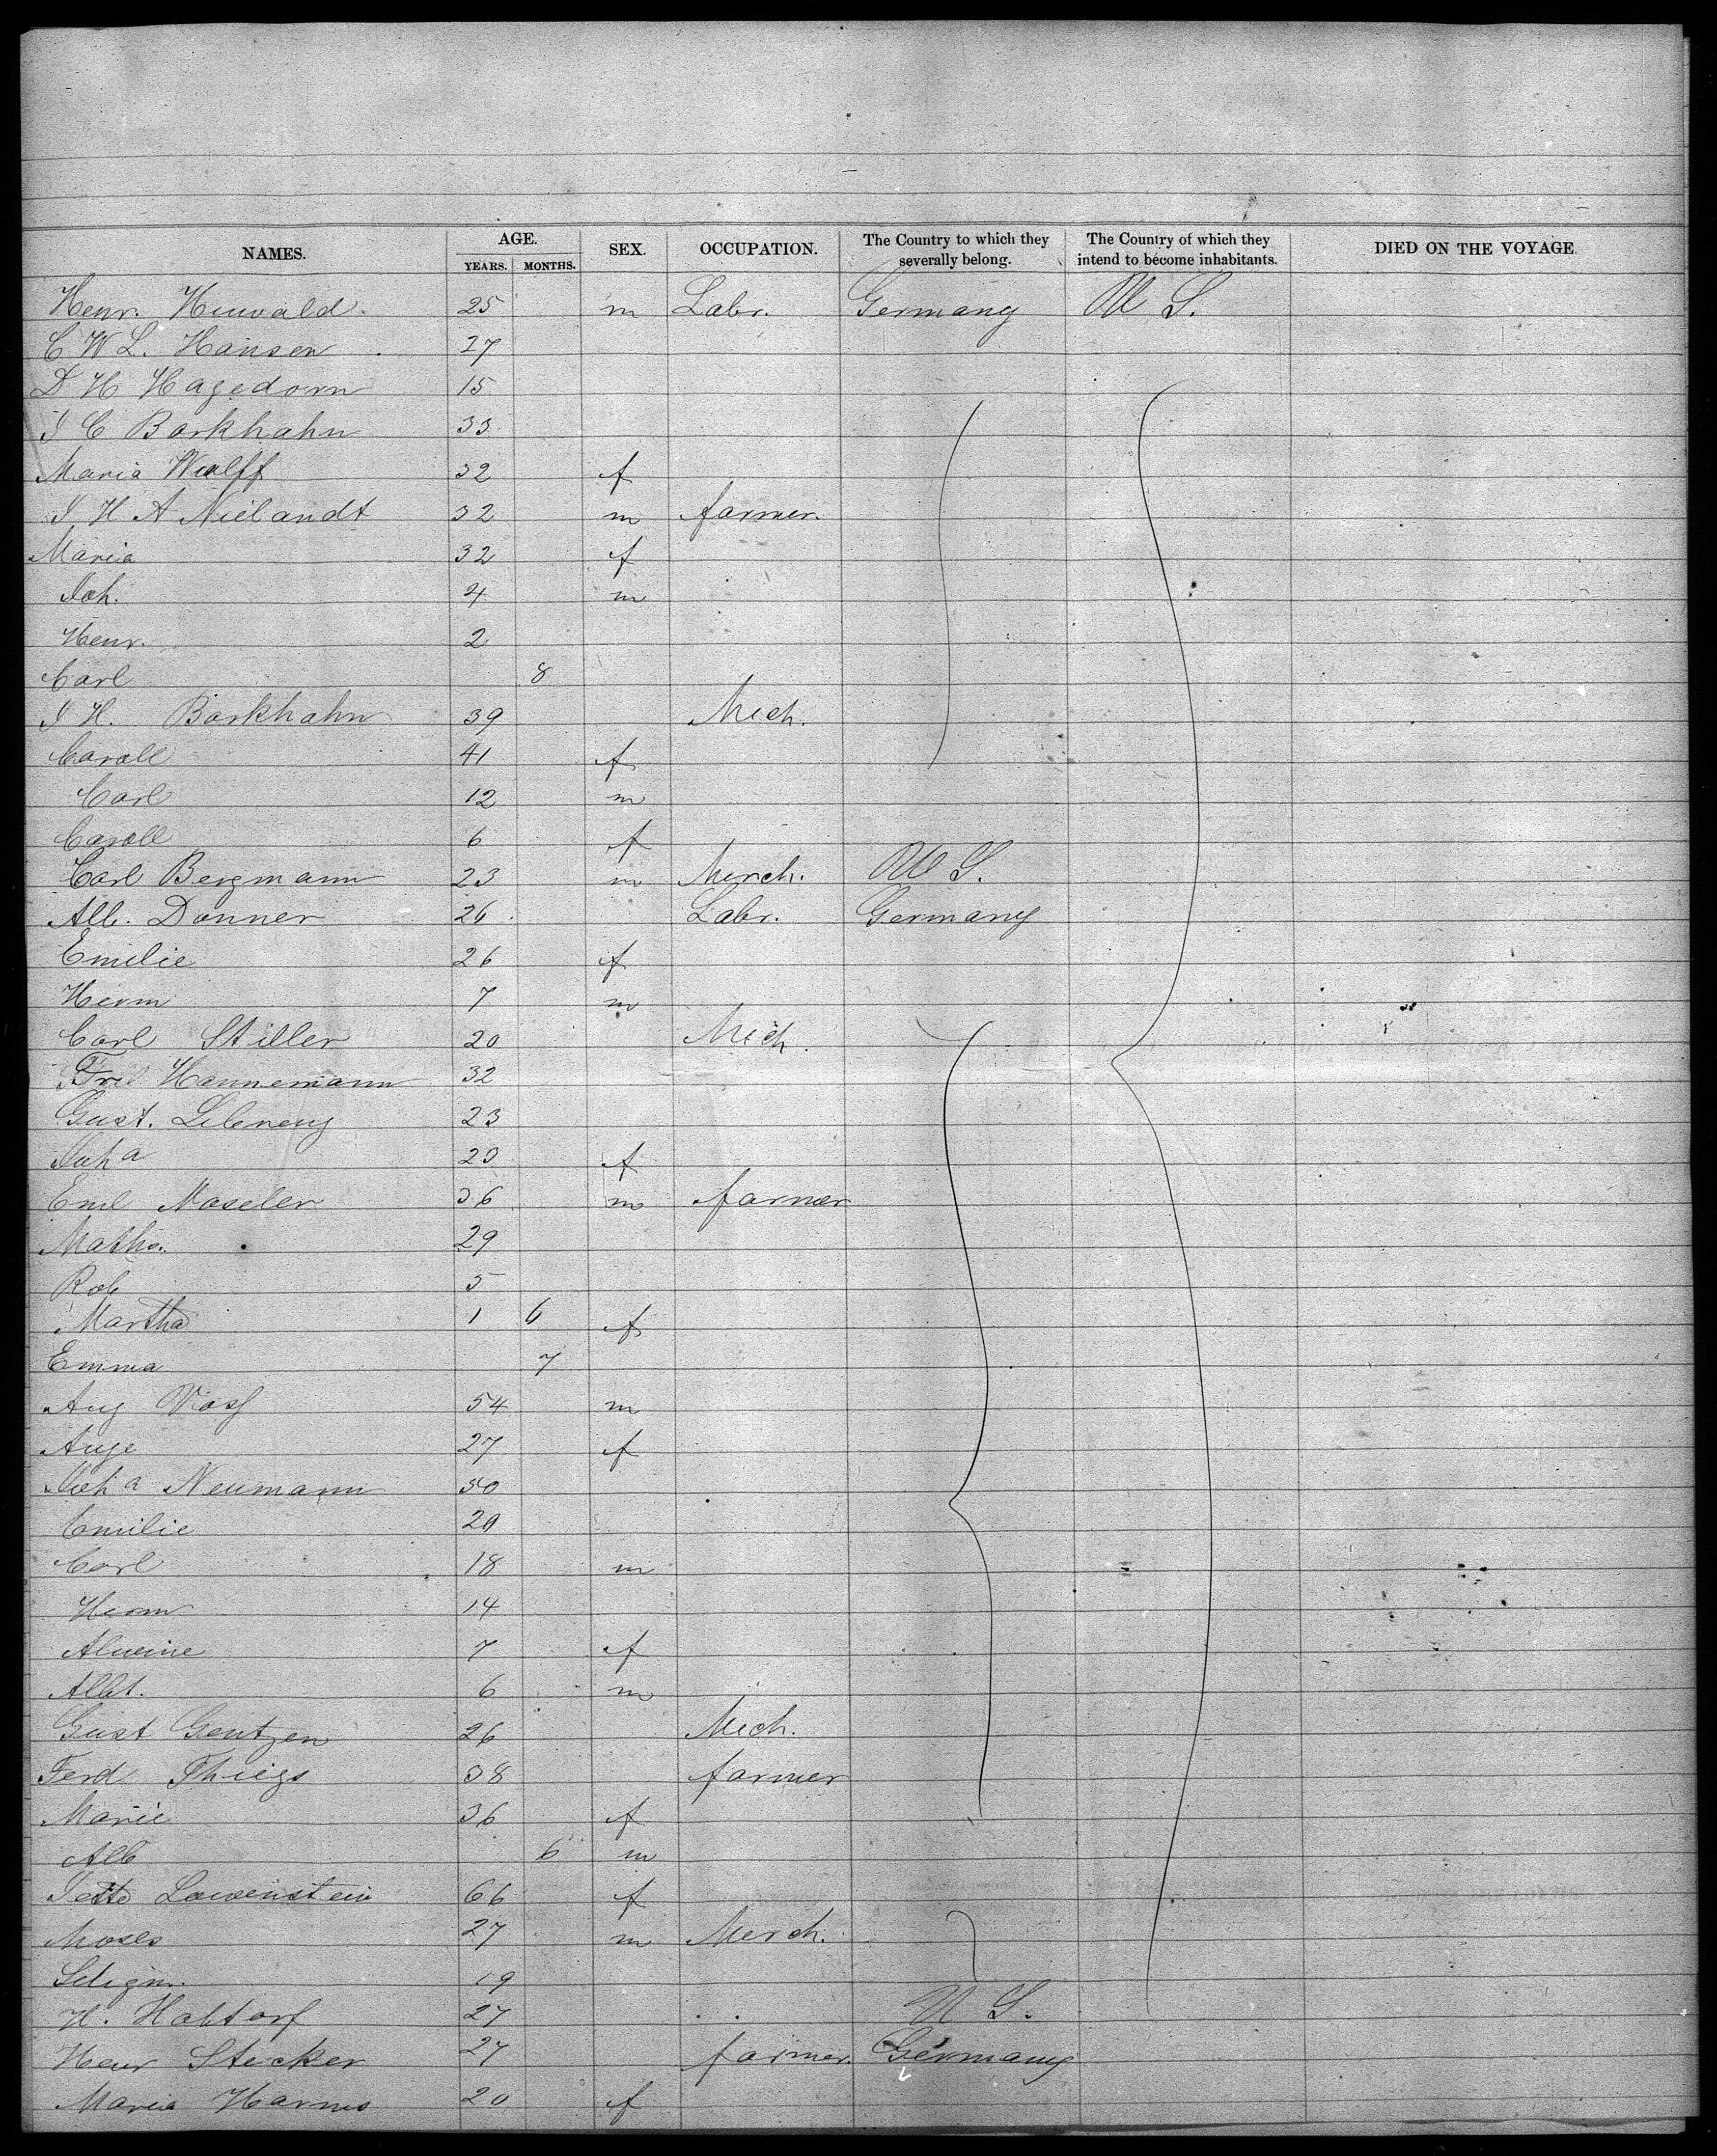 NAMES. AGE. YEARS. MONTHS. SEX. OCCUPATION. The Country to which they severally belong. The Country of which they intend to become inhabitants. DIED ON THE VOYAGE.
Henr. Huwald. 25 m Labr. Germany U S.
C W L. Hansen 27
D H Hagedorn 15
J C Barkhahn 33
Maria Wulff 32 f
J H A Nielandt 32 m farmer.
Maria 32 f
Joh. 4 m
Henr. 2
Carl 8
J H. Barkhahn 39 Mech.
Caroll 41 f
Carl 12 m
Caroll 6 f
Carl Bergmann 23 m Merch. U S.
Alb. Donner 26 Labr. Germany
Emilie 26 f
Herm 7 m
Carl Stiller 20 Mech.
Fred Hannemann 32
Gust. 23
Joha 23 f
Emil Maseler 36 m farmer
29
Rob 5
Martha 1 6 f
Emma 7
Aug Voss 54 m
Auge 27 f
Joha Neumann 50
Emilie 20
Carl 18 m
Herm 14
Alwine 7 f
Albt. 6 m
Gust Gentzen 26 Mech.
Ferd Thiegs 38 farmer
Marie 36 f
Alb 6 m
Lowenstein 66 f
Moses 27 m Merch.
Seligm. 19
H. Habtorf 27 U S.
Henr Stecker 27 farmer. Germany
Maria Harms 20 f